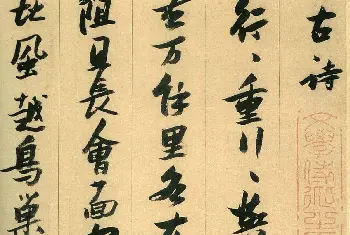 古诗
行、重行、與
去万餘里各在
阻且長會面
北風越鳥巢